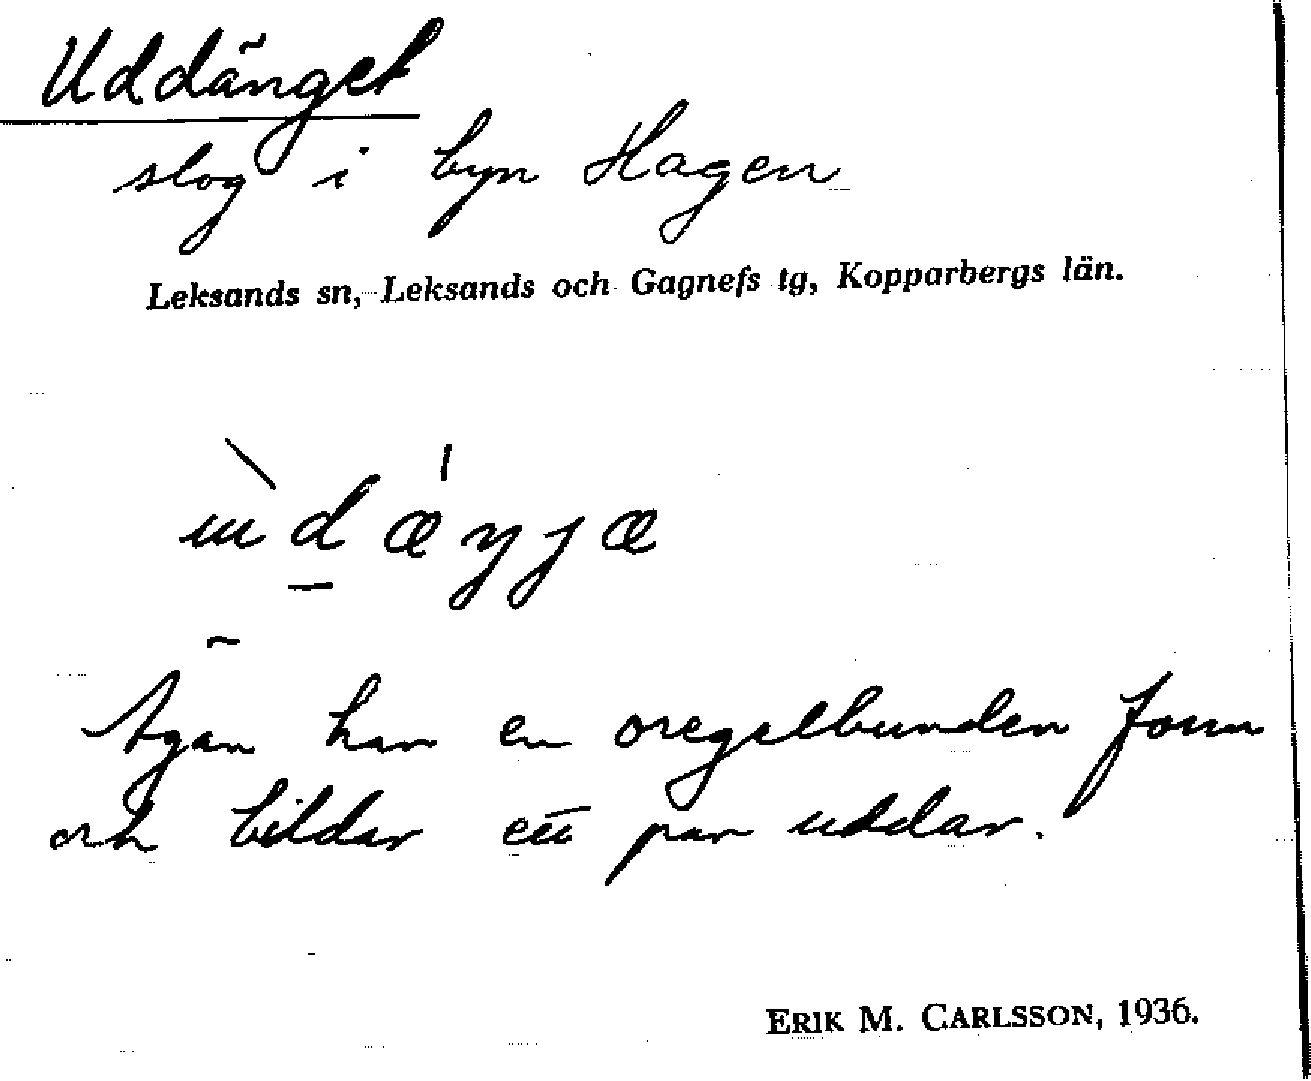 Uddänget
slog i byn Hagen
Leksands sn, Leksands och Gagnefs tg, Kopparbergs län.
Ägan har en oregelbunden form
och bildar ett par uddar.
ERIK M. CARLSSON, 1936.